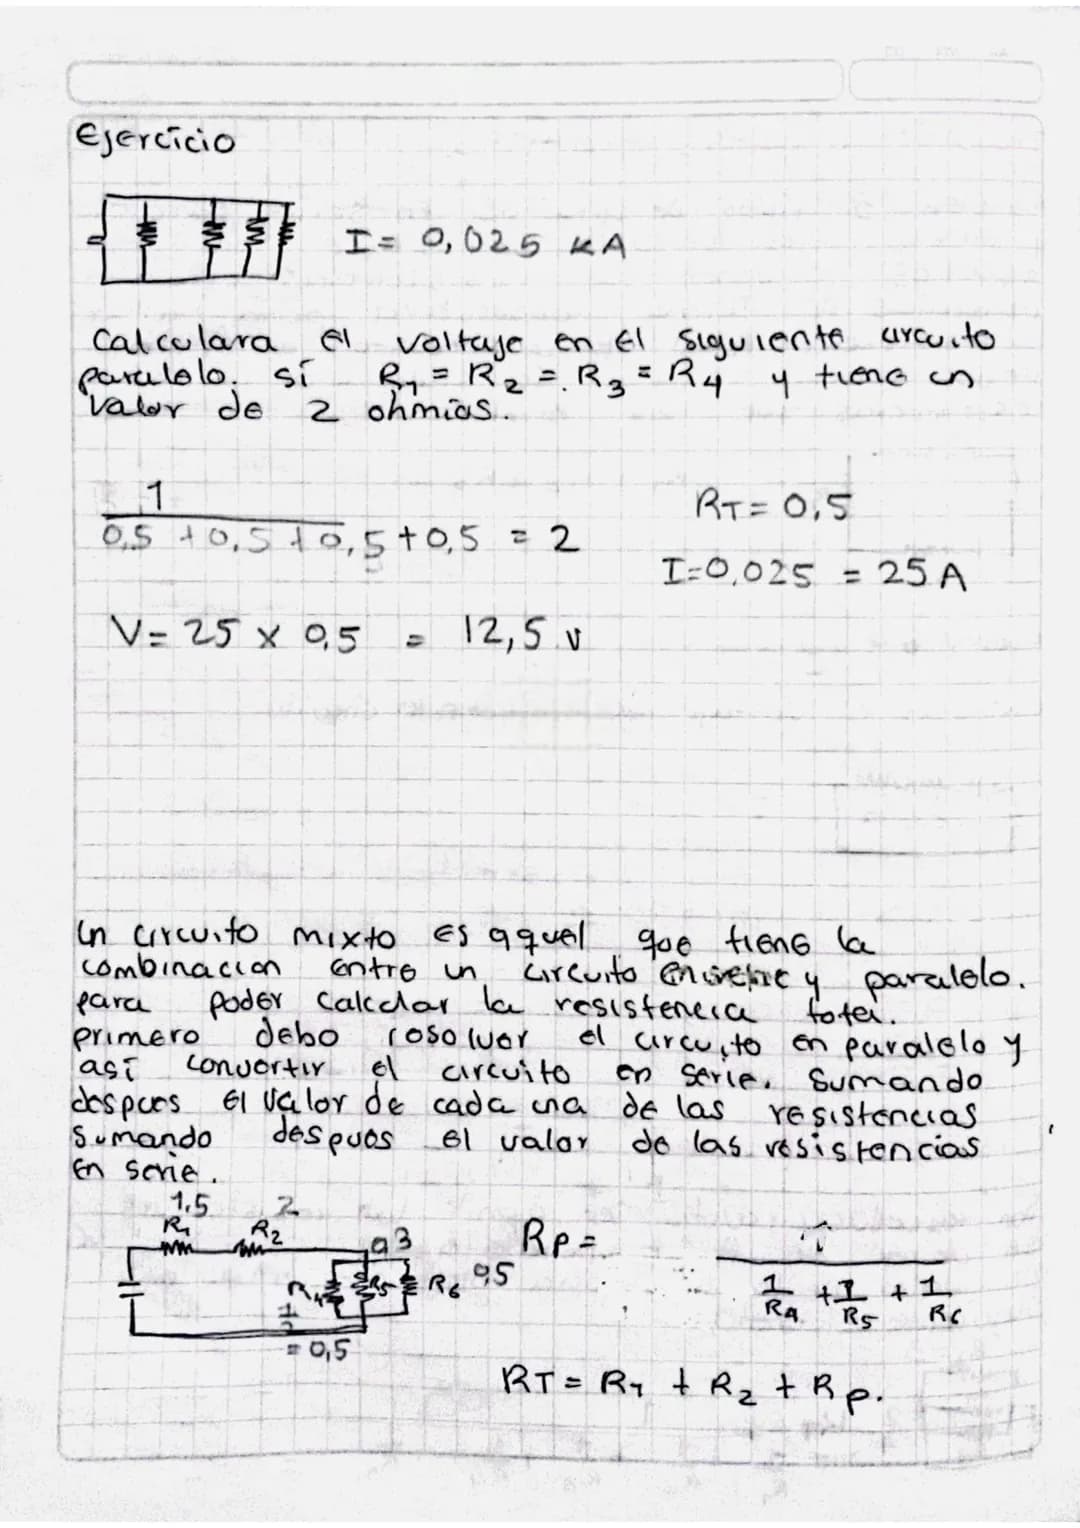 Ejercicio
I= 0,025 KA
Calculara el voltaje en el siguiente circuito
paralelo. sí R1 = R2 = R3 = R4 y tiene un
valor de 2 ohmios.
1
0,5 +0,5 +0,5+0,5 = 2
RT= 0,5
I=0,025 = 25 A
V= 25 x 0,5 = 12,5 v
Un circuito mixto es aquel que tiene la
combinacion entre un circuito y paralelo.
para poder calcular la resistencia total.
primero debo resolver el circuito en paralelo y
así convertir el circuito en serie. Sumando
despues el valor de cada una de las resistencias
Sumando despues el valor de las resistencias
en serie.
1,5 2
R1 R2
0,3
R4 R5 R6 0,5
= 0,5
Rp=
1
1/R4 + 1/R5 + 1/R6
RT= R1 + R2 + Rp.